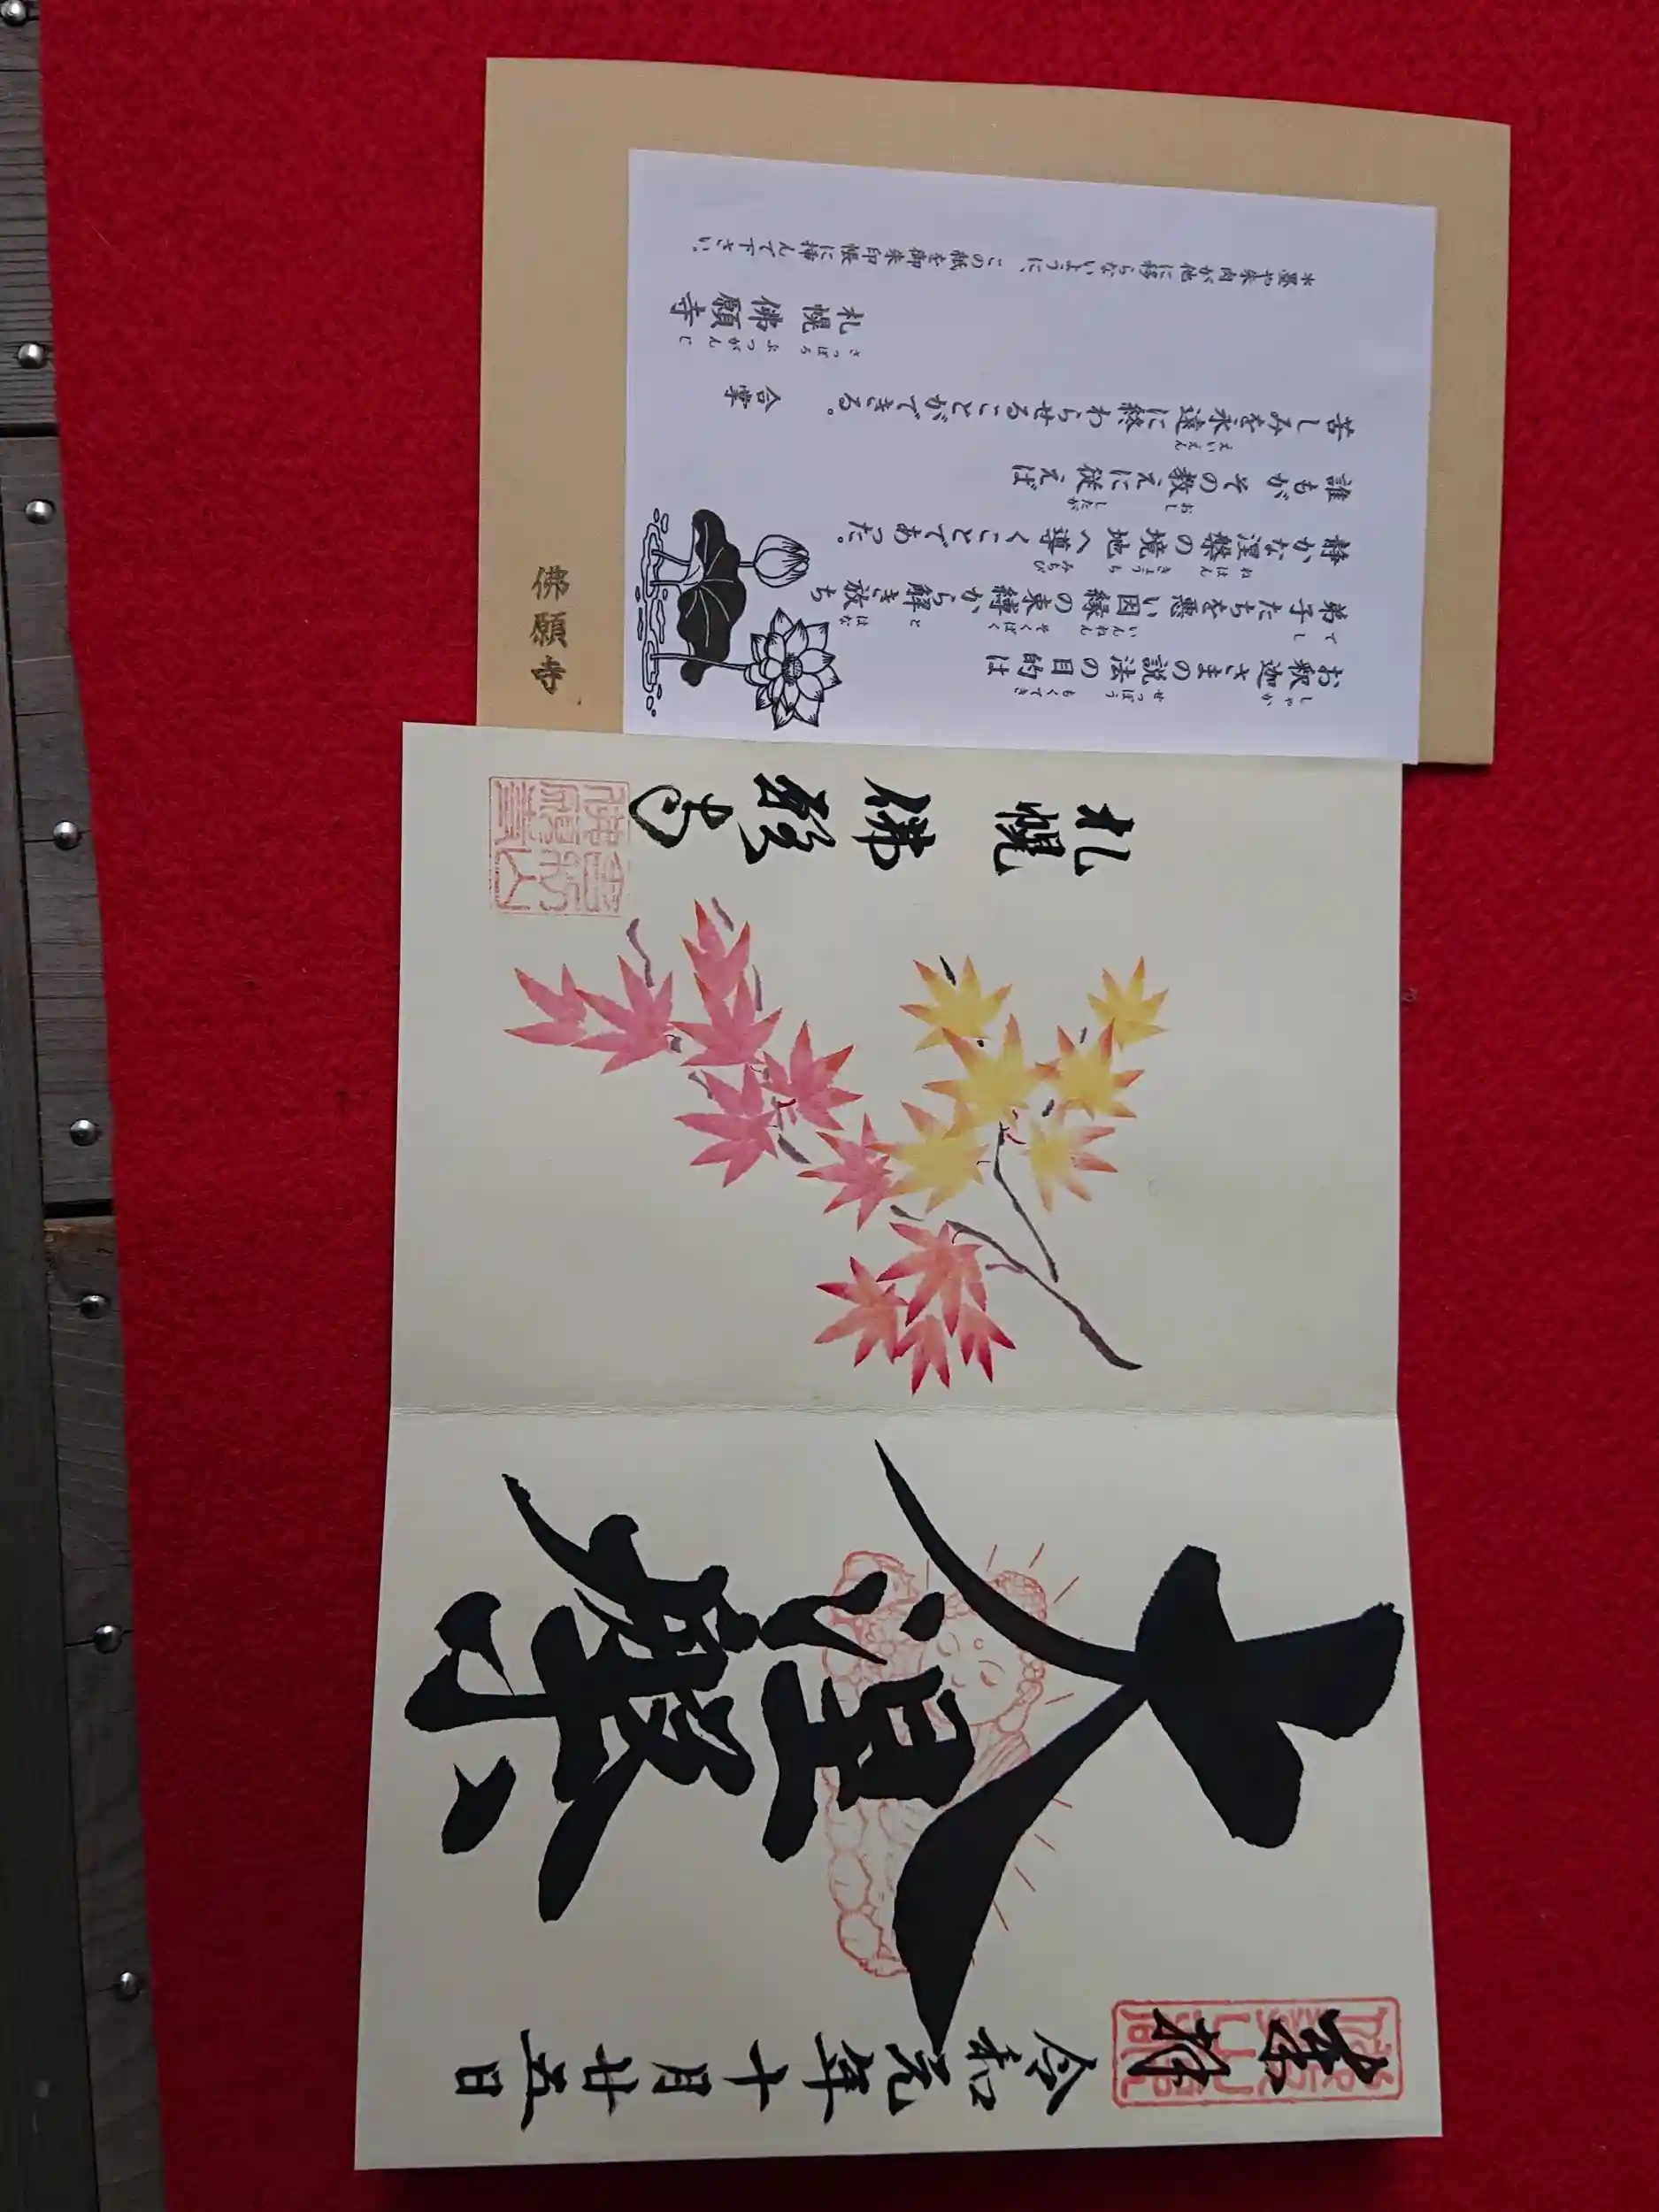 奉拝
令和元年十月廿五日
大涅槃
札幌佛願寺
お釈迦さまの説法の目的は
弟子たちを悪い因縁の束縛から解き放ち
静かな涅槃の境地へ導くことであった。
誰もが その教えに従えば
苦しみを永遠に終わらせることができる。
合掌
札幌佛願寺
※墨や朱肉が他に移らないように、この紙を御朱印帳に挿んで下さい。
佛願寺